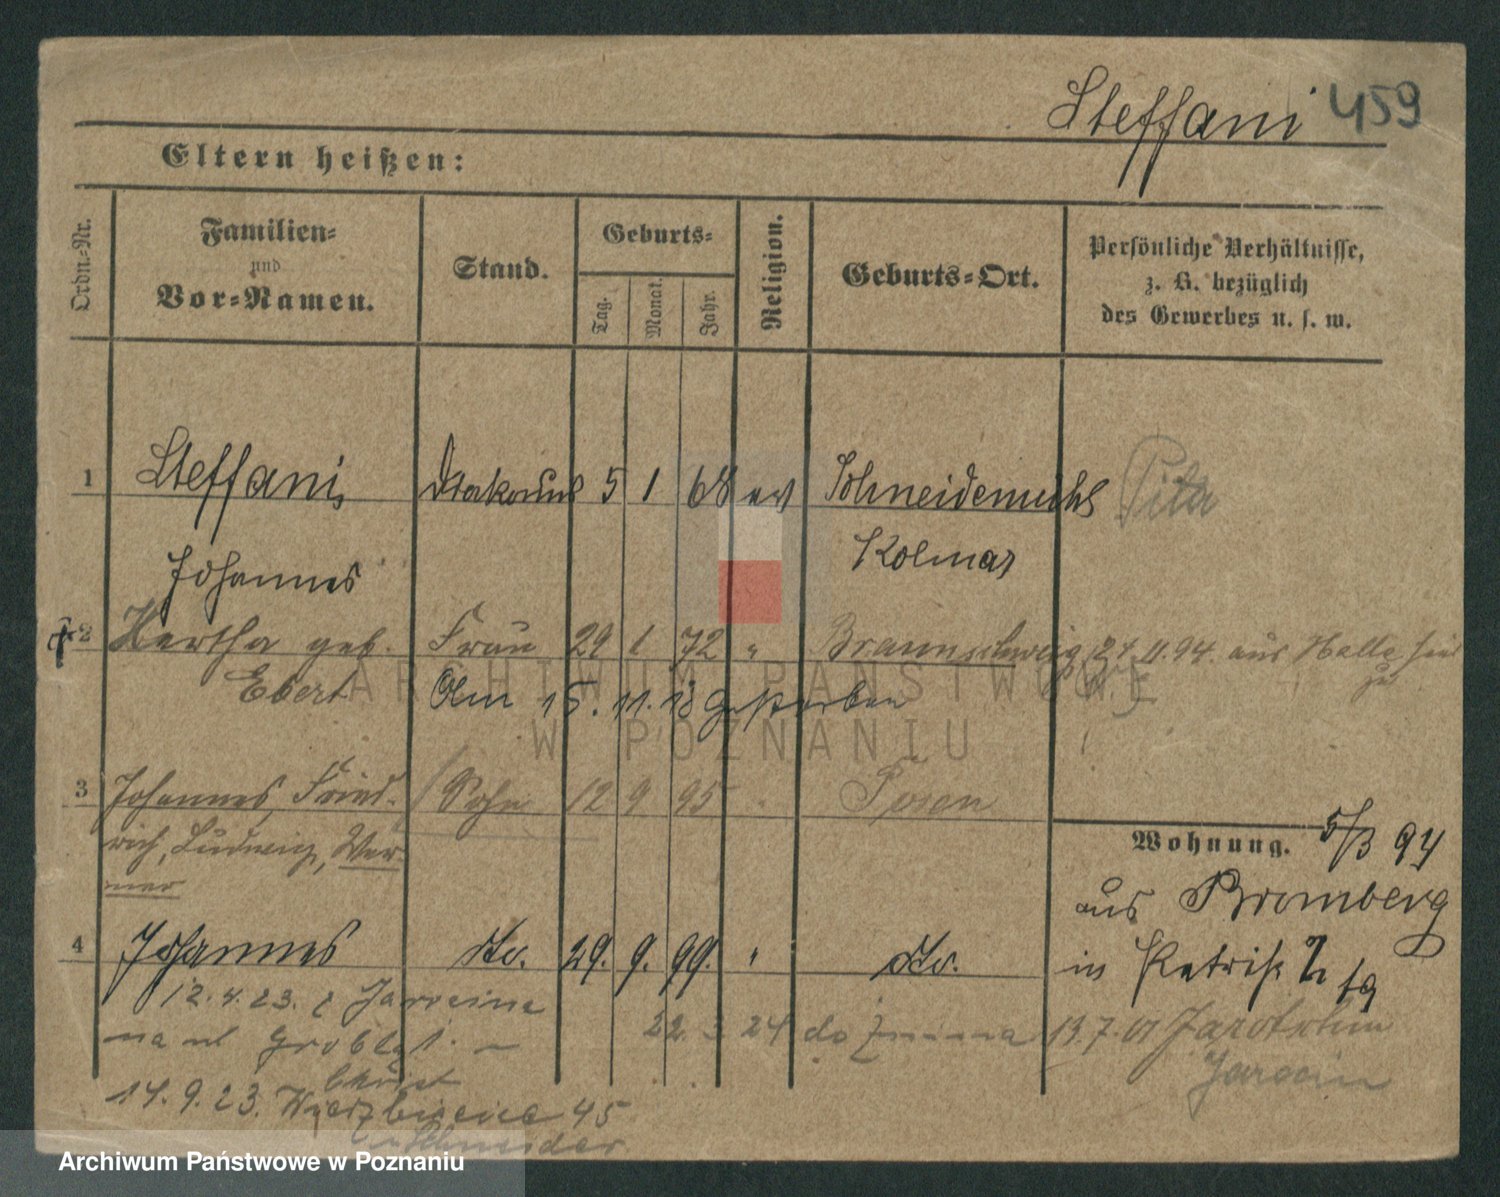 Steffani 459
Eltern heißen:
Ordn.-Nr.
Familien-
und
Vor-Namen.
Stand.
Geburts-
Tag.
Monat.
Jahr.
Religion.
Geburts-Ort.
Persönliche Verhältnisse,
z. B. bezüglich
des Gewerbes u. s. w.
1 Steffani, Diakonus 5 1 68 ev Schneidemühl
Johannes Kolmar
2 Hertha geb. Frau 29 1 72 " Braunschweig 24. 11. 94. aus Halle hier
Ebert Am 15. 11. 18 gestorben zu
ARCHIWUM PAŃSTWOWE
W POZNANIU
3 Johannes, Fried- Sohn 12 9 95 " Posen
rich, Ludwig, Wer-
ner
Wohnung. 5/3 94
aus Bromberg
4 Johannes do. 29. 9. 99. " do. in
12.4.23. z Jarocina
na ul Grobla 1. 22. 3 24 do Żnina 13.7.01 Jarotschin
Jarocin
14.9.23. 45
Archiwum Państwowe w Poznaniu